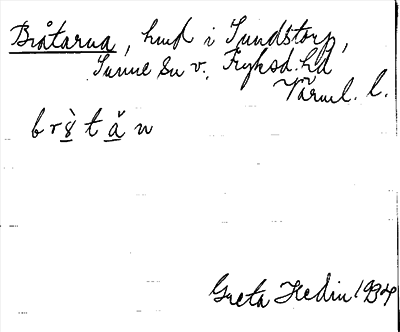 Bråtarna, hmd i Sundstorp,
Sunne Sn v., Fryksd. hd
Värml. l.
br s̀ t ă n
Greta Hedin 1934